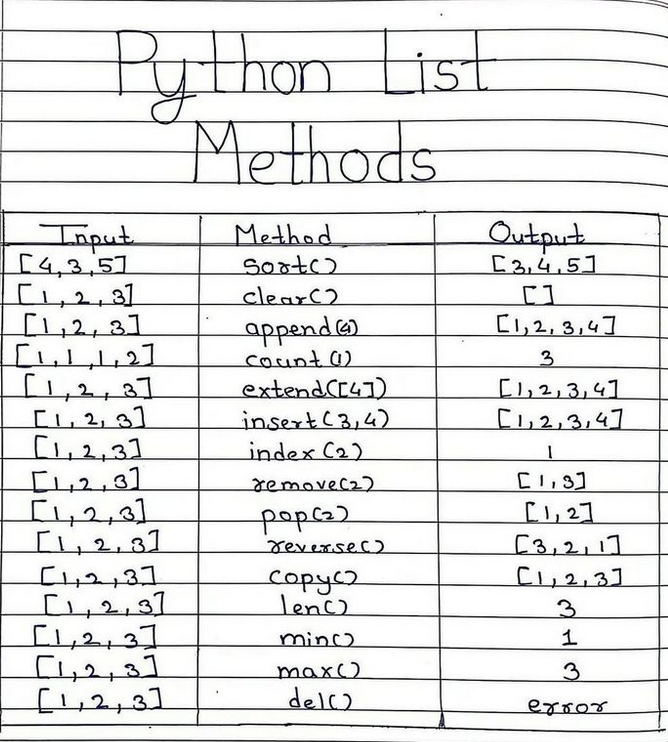 Python List
Methods
Input Method Output
[4,3,5] sort() [3,4,5]
[1,2,3] clear() []
[1,2,3] append(4) [1,2,3,4]
[1,1,1,2] count(1) 3
[1,2,3] extend([4]) [1,2,3,4]
[1,2,3] insert(3,4) [1,2,3,4]
[1,2,3] index(2) 1
[1,2,3] remove(2) [1,3]
[1,2,3] pop(2) [1,2]
[1,2,3] reverse() [3,2,1]
[1,2,3] copy() [1,2,3]
[1,2,3] len() 3
[1,2,3] min() 1
[1,2,3] max() 3
[1,2,3] del() error